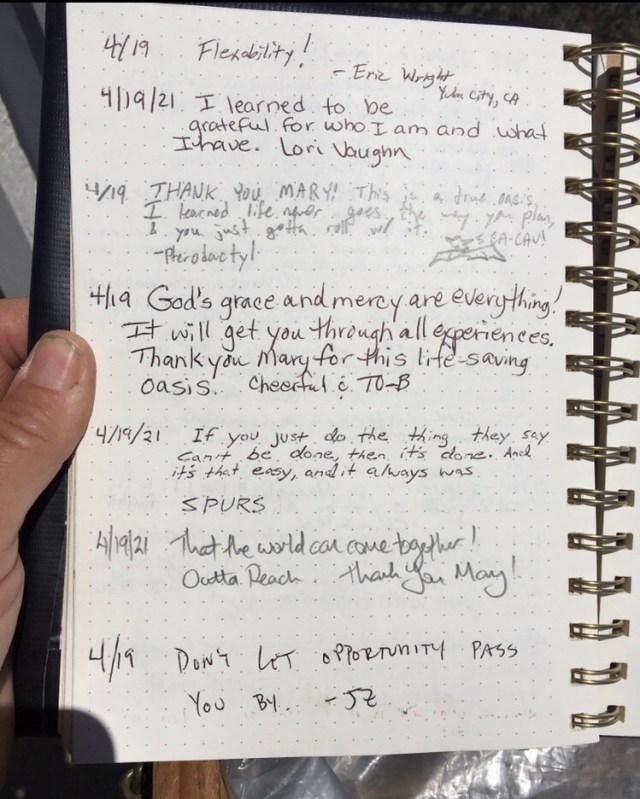 4/19 Flexability!
- Eric Wright
Yuba City, CA
4/19/21 I learned to be
grateful for who I am and what
I have. Lori Vaughn
4/19 THANK YOU MARY! This is a true oasis
I learned life never goes the way you plan,
& you just gotta roll w/ it.
-Pterodactyl
4/19 God's grace and mercy are everything!
It will get you through all experiences.
Thank you Mary for this life-saving
oasis. Cheerful & TO-B
4/19/21 If you just do the thing they say
can't be done, then it's done. And
it's that easy, and it always was
SPURS
4/19/21 That the world can come together!
Outta Reach. Thank You Mary!
4/19 DON'T LET OPPORTUNITY PASS
YOU BY. - JZ